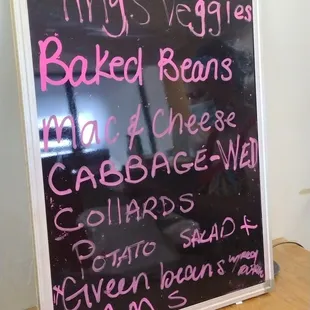 Veggies
Baked Beans
Mac & Cheese
CABBAGE-WED
Collards
Potato SALAD +
*Green beans w/